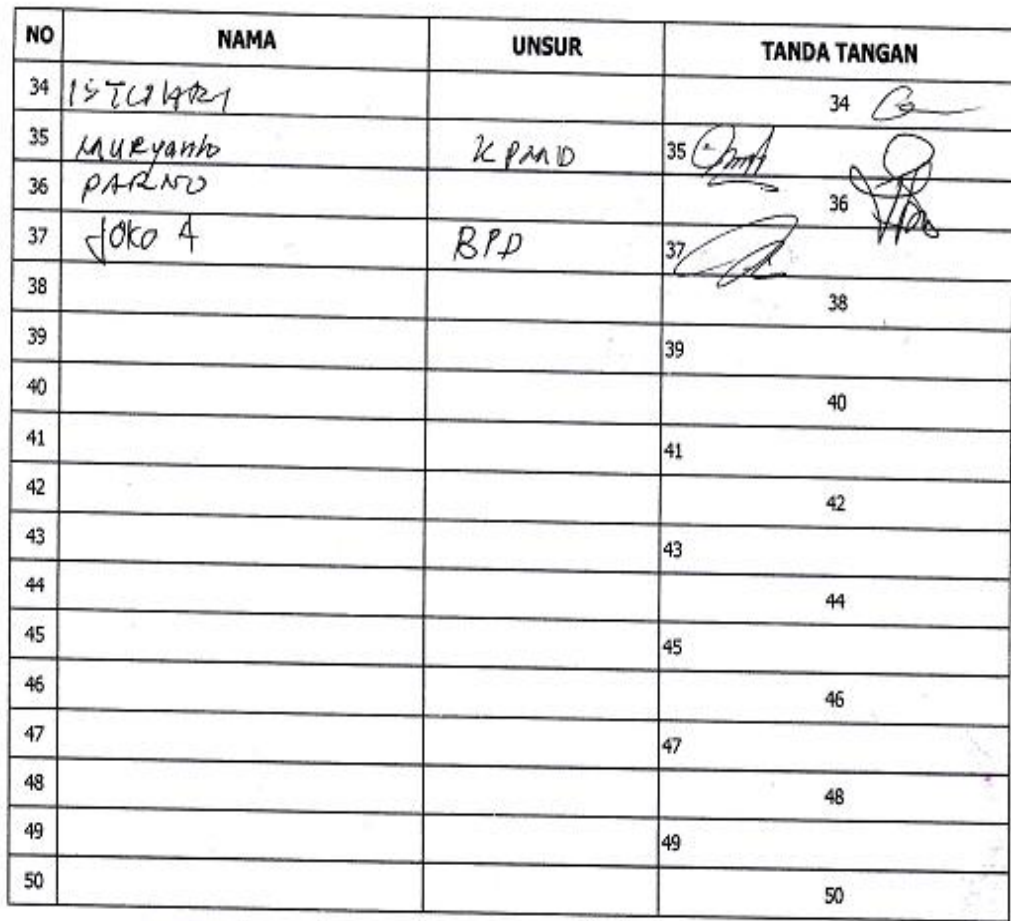 NO NAMA UNSUR TANDA TANGAN
34 34
35 Muryanto KPMD 35
36 PARNO 36
37 JOKO A BPD 37
38 38
39 39
40 40
41 41
42 42
43 43
44 44
45 45
46 46
47 47
48 48
49 49
50 50